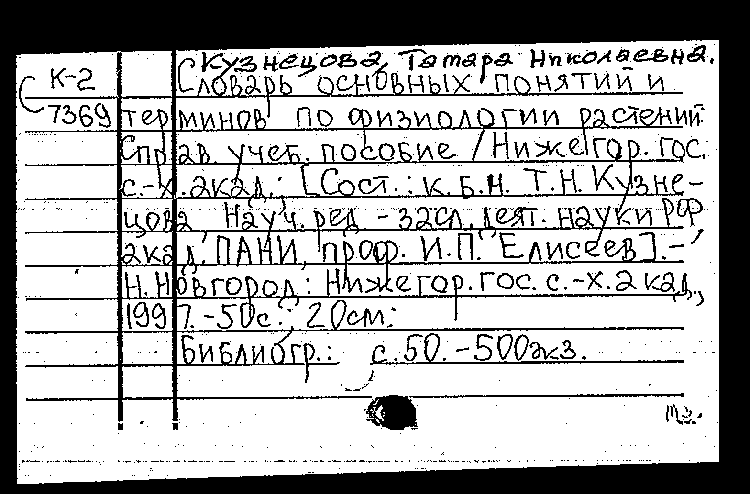 Кузнецова, Тамара Николаевна.
К-2 Словарь основных понятий и
7369 терминов по физиологии растений
Справ. учеб. пособие / Нижегор. гос.
с.-х. акад.; [Сост.: к.б.н. Т.Н. Кузне-
цова, Науч. ред. - засл. деят. науки РФ,
акад. ПАНИ, проф. И.П. Елисеев]. -
Н. Новгород: Нижегор. гос. с.-х. акад.,
1997. - 50с.; 20см.
Библиогр.: с. 50. - 500экз.